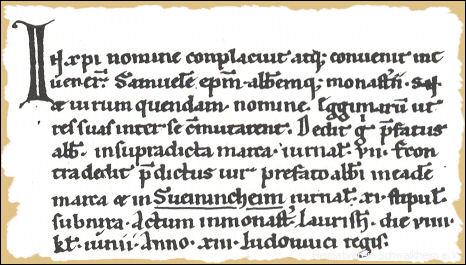 In xpi nomine conplacuit atq; conuenit int
uener̄ Samuelē ep̄m abb̄emq; monast̄ii
& uirum quendam nomine Eggimarū ut
res suas inter se c̄mutarent. Dedit g̊ p̄fatus
abb̄ insupradicta marca iurnal̄ vii. Et con
tra dedit p̄dictus uir prefato abb̄i in eadē
marca & in Sueinincheim iurnal̄ xi stipul̄
subnixa. Actum in monast̄ Laurish̄. die viiii
kl̄ iunii. Anno xiii Ludouuici regis.